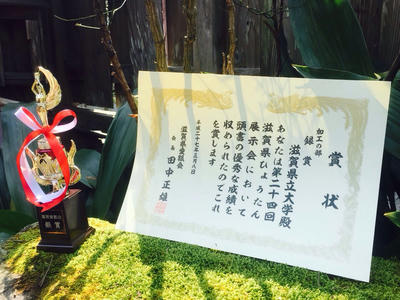 賞状
加工の部
銀賞
滋賀県立大学殿
あなたは第二十四回
滋賀県ひょうたん
展示会において
頭書の優秀な成績を
収められたのでこれ
を賞します
平成二十七年五月八日
滋賀県愛瓢会
会長 田中正雄
銀賞